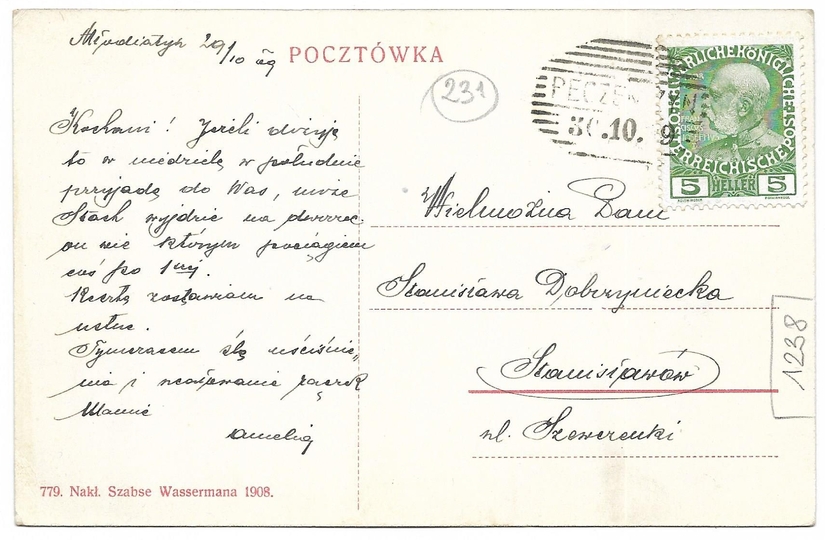 Młodiatyn 29/10 09
POCZTÓWKA
231
PECZENIŻYN
30.10. 9
5 HELLER 5
Kochani! Jeżeli dożyję
to w niedzielę w południe
przyjadę do Was, może
Stach wyjdzie na dworzec
on wie którym pociągiem
coś po 1ej.
Resztę zostawiam na
ustne.
Tymczasem ślę uściśnie,
nia i ucałowanie rączek
Mamie
Amelia
Wielmożna Pani
Stanisława Dobrzyniecka
Stanisławów
ul. Szewczenki
1238
779. Nakł. Szabse Wassermana 1908.